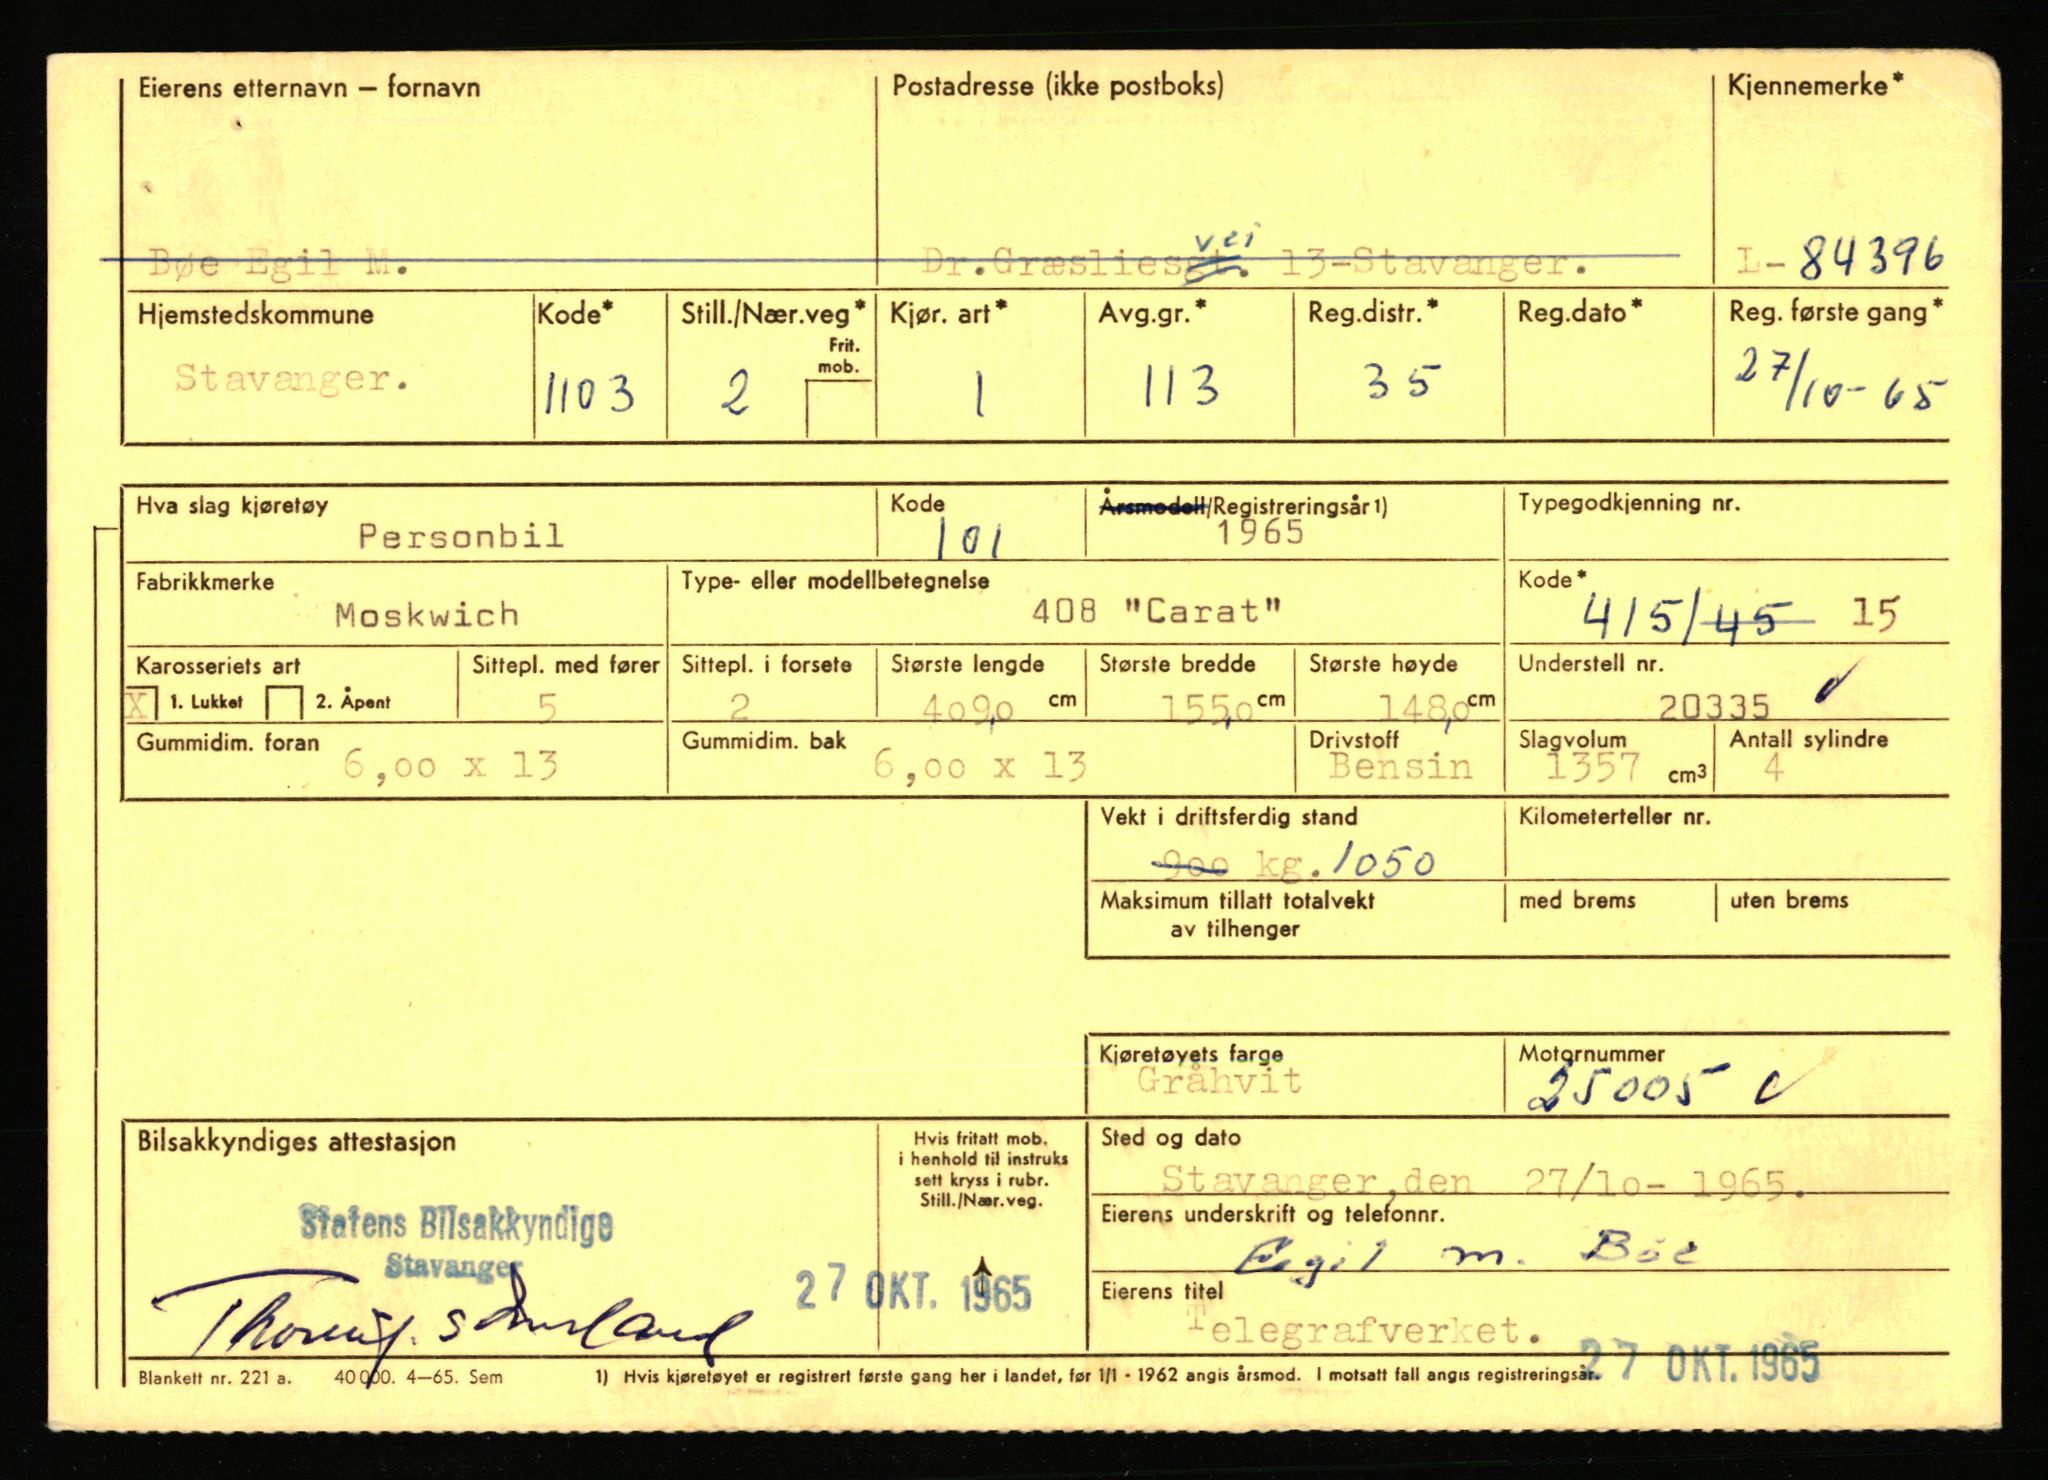 Eierens etternavn – fornavn Postadresse (ikke postboks) Kjennemerke*
vei
Bøe Egil M. Dr.Græsliesgt. 13-Stavanger. L-84396
Hjemstedskommune Kode* Still./Nær.veg* Kjør. art* Avg.gr.* Reg.distr.* Reg.dato* Reg. første gang*
Frit.
mob.
Stavanger. 1103 2 1 113 35 27/10-65
Hva slag kjøretøy Kode Årsmodell/Registreringsår 1) Typegodkjenning nr.
Personbil 101 1965
Fabrikkmerke Type- eller modellbetegnelse Kode*
Moskwich 408 "Carat" 415/45 15
Karosseriets art Sittepl. med fører Sittepl. i forsete Største lengde Største bredde Største høyde Understell nr.
X 1. Lukket 2. Åpent 5 2 409,0 cm 155,0 cm 148,0 cm 20335
Gummidim. foran Gummidim. bak Drivstoff Slagvolum Antall sylindre
6,00 x 13 6,00 x 13 Bensin 1357 cm3 4
Vekt i driftsferdig stand Kilometerteller nr.
900 kg. 1050
Maksimum tillatt totalvekt med brems uten brems
av tilhenger
Kjøretøyets farge Motornummer
Gråhvit 25005
Bilsakkyndiges attestasjon Hvis fritatt mob.
i henhold til instruks
sett kryss i rubr.
Still./Nær.veg.
Sted og dato
Stavanger,den 27/10- 1965.
Statens Bilsakkyndige
Stavanger
27 OKT. 1965
Eierens underskrift og telefonnr.
Egil M. Bøe
Eierens titel
Telegrafverket.
27 OKT. 1965
Blankett nr. 221 a. 40 000. 4–65. Sem 1) Hvis kjøretøyet er registrert første gang her i landet, før 1/1 - 1962 angis årsmod. I motsatt fall angis registreringsår.